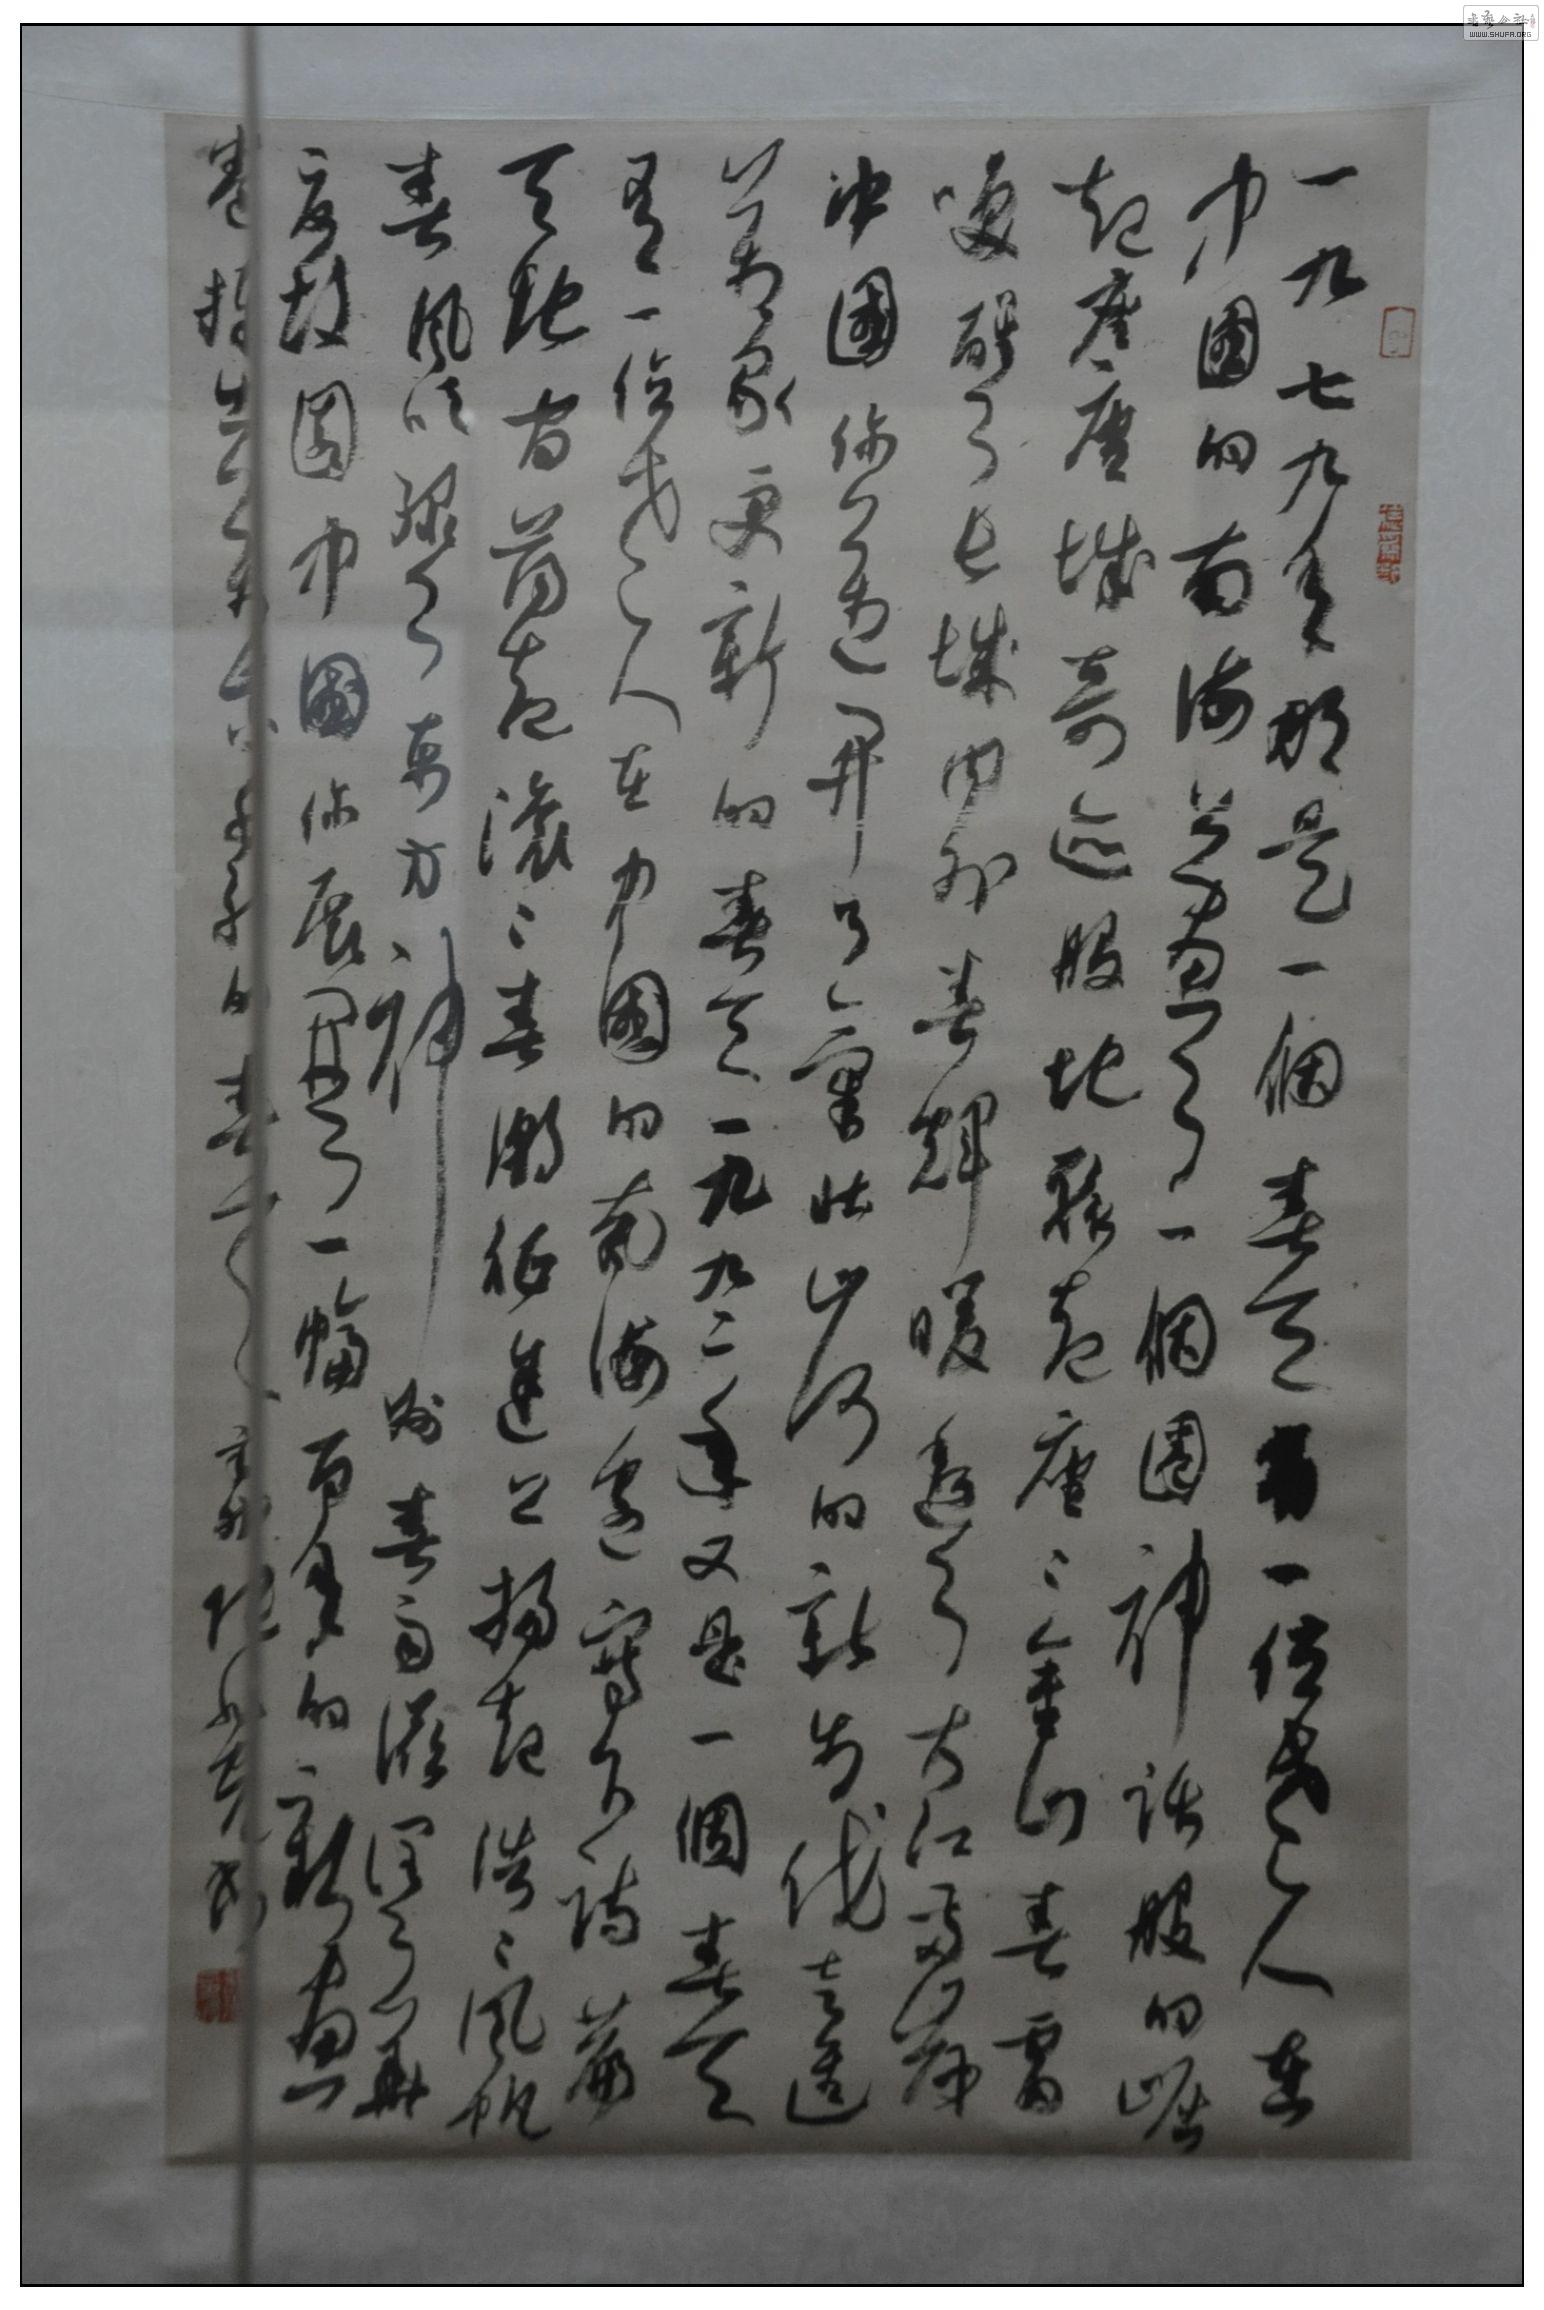 一九七九年那是一個春天有一位老人在
中國的南海邊畫了一個圈神話般的崛
起座座城奇迹般地聚起座座金山春雷
喚醒了長城内外春輝暖透了大江兩岸
中國你邁開了氣壯山河的新步伐走進
萬象更新的春天一九九二年又是一個春天
有一位老人在中國的南海邊寫下詩篇
天地間蕩起滾滾春潮征途上揚起浩浩風帆
春風吹綠了東方神州春雨滋潤了華
夏故園中國你展開了一幅百年的新畫
卷捧出萬紫千紅的春天
WWW.SHUFA.ORG